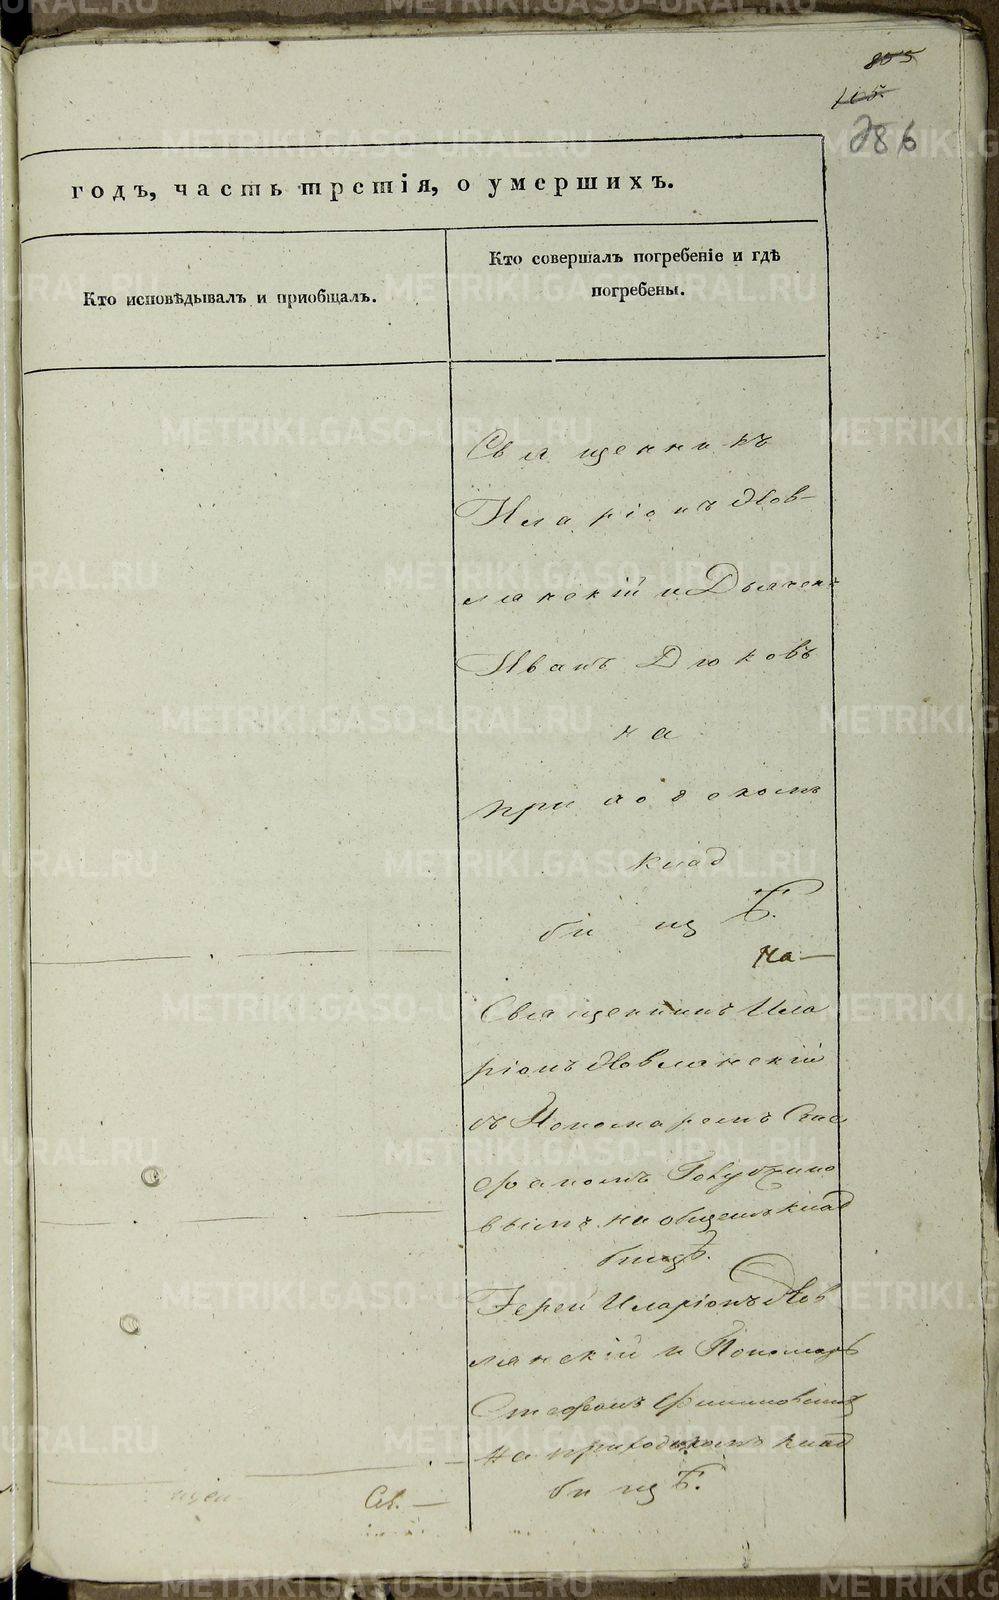 805
105.
286
годъ, часть третія, о умершихъ.
Кто исповѣдывалъ и приобщалъ.
Кто совершалъ погребеніе и гдѣ
погребены.
Священникъ
Иларіонъ Нов-
лянскій и Дьячекъ
Иванъ Дюковъ
на
приходскомъ
клад
би щѣ.
На—
Священникъ Ила
ріонъ Новлянскій
съ Пономаремъ Сте
фаномъ
вымъ на общемъ клад
бищѣ.
Іерей Иларіонъ Нов
лянскій и Пономарь
Стефанъ
на приходскомъ клад
би щѣ.
Св.—
METRIKI.GASO-URAL.RU